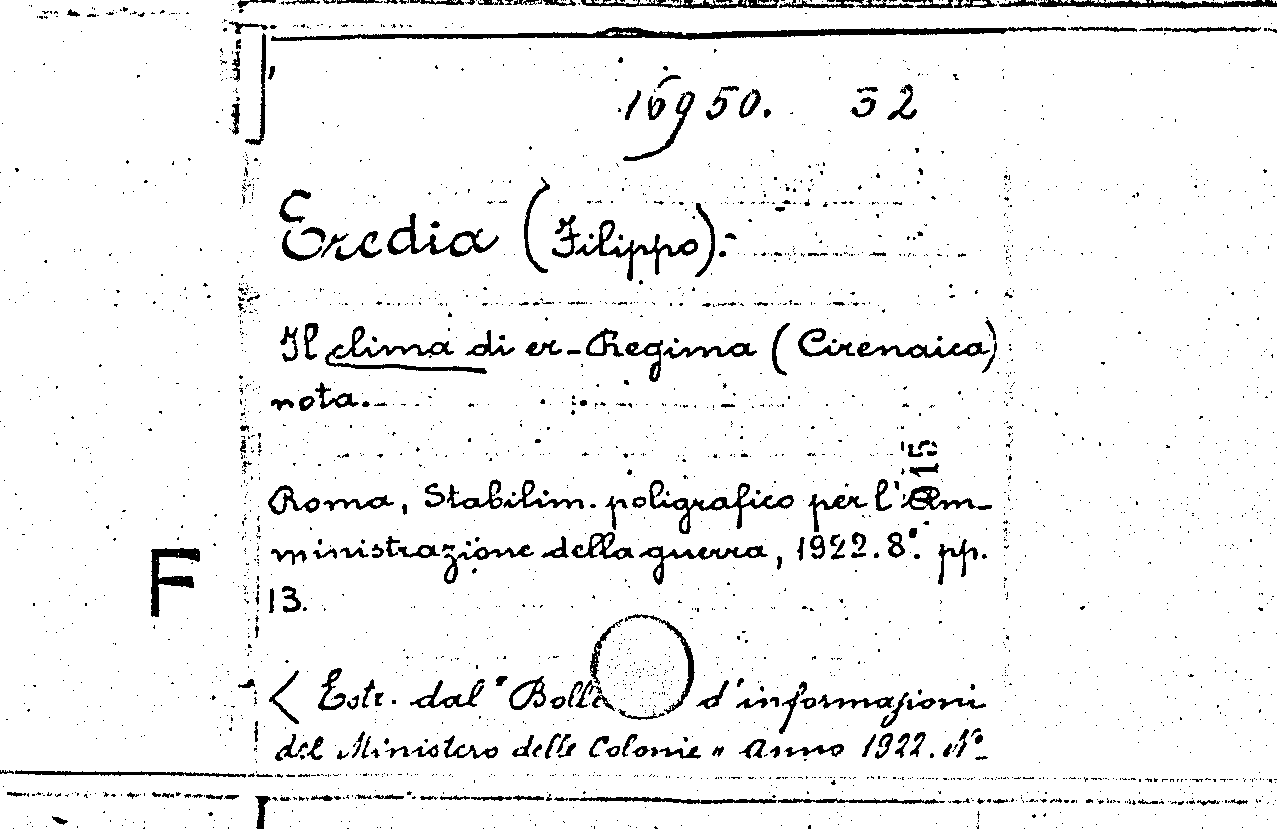 16950. 32
Eredia (Filippo).-
Il clima di er-Regima (Cirenaica)
nota.
15
Roma, Stabilim. poligrafico per l'Am-
ministrazione della guerra, 1922. 8°. pp.
13.
F
< Estr. dal "Boll d'informazioni
del Ministero delle Colonie" Anno 1922. N°-